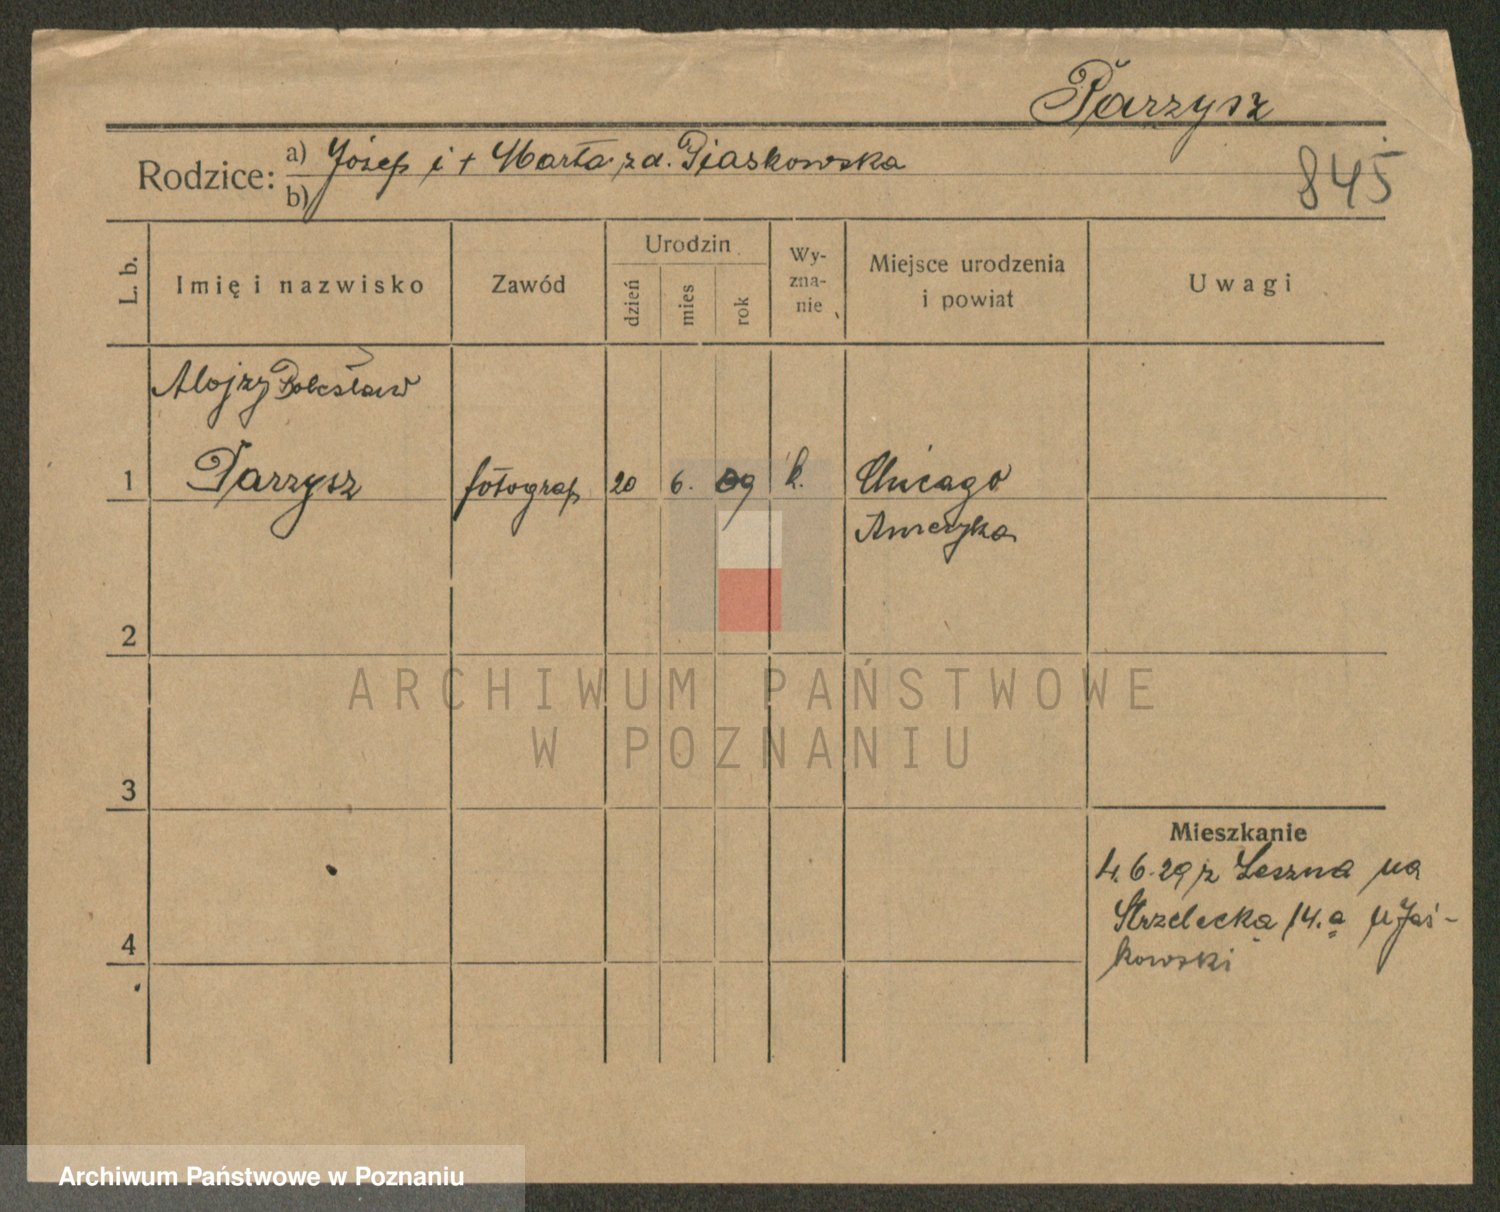 Parzysz
Rodzice: a) Józef i + Marta zd. Piaskowska
b)
845
L. b.
Imię i nazwisko
Zawód
Urodzin
dzień
mies
rok
Wy-
zna-
nie
Miejsce urodzenia
i powiat
Uwagi
Alojzy Bolesław
1 Parzysz fotograf 20 6. 09 k. Chicago
Ameryka
2
ARCHIWUM PAŃSTWOWE
W POZNANIU
3
Mieszkanie
4.6.29 z Leszna na
Strzelecka 14.a u Jaś-
kowski
4
Archiwum Państwowe w Poznaniu